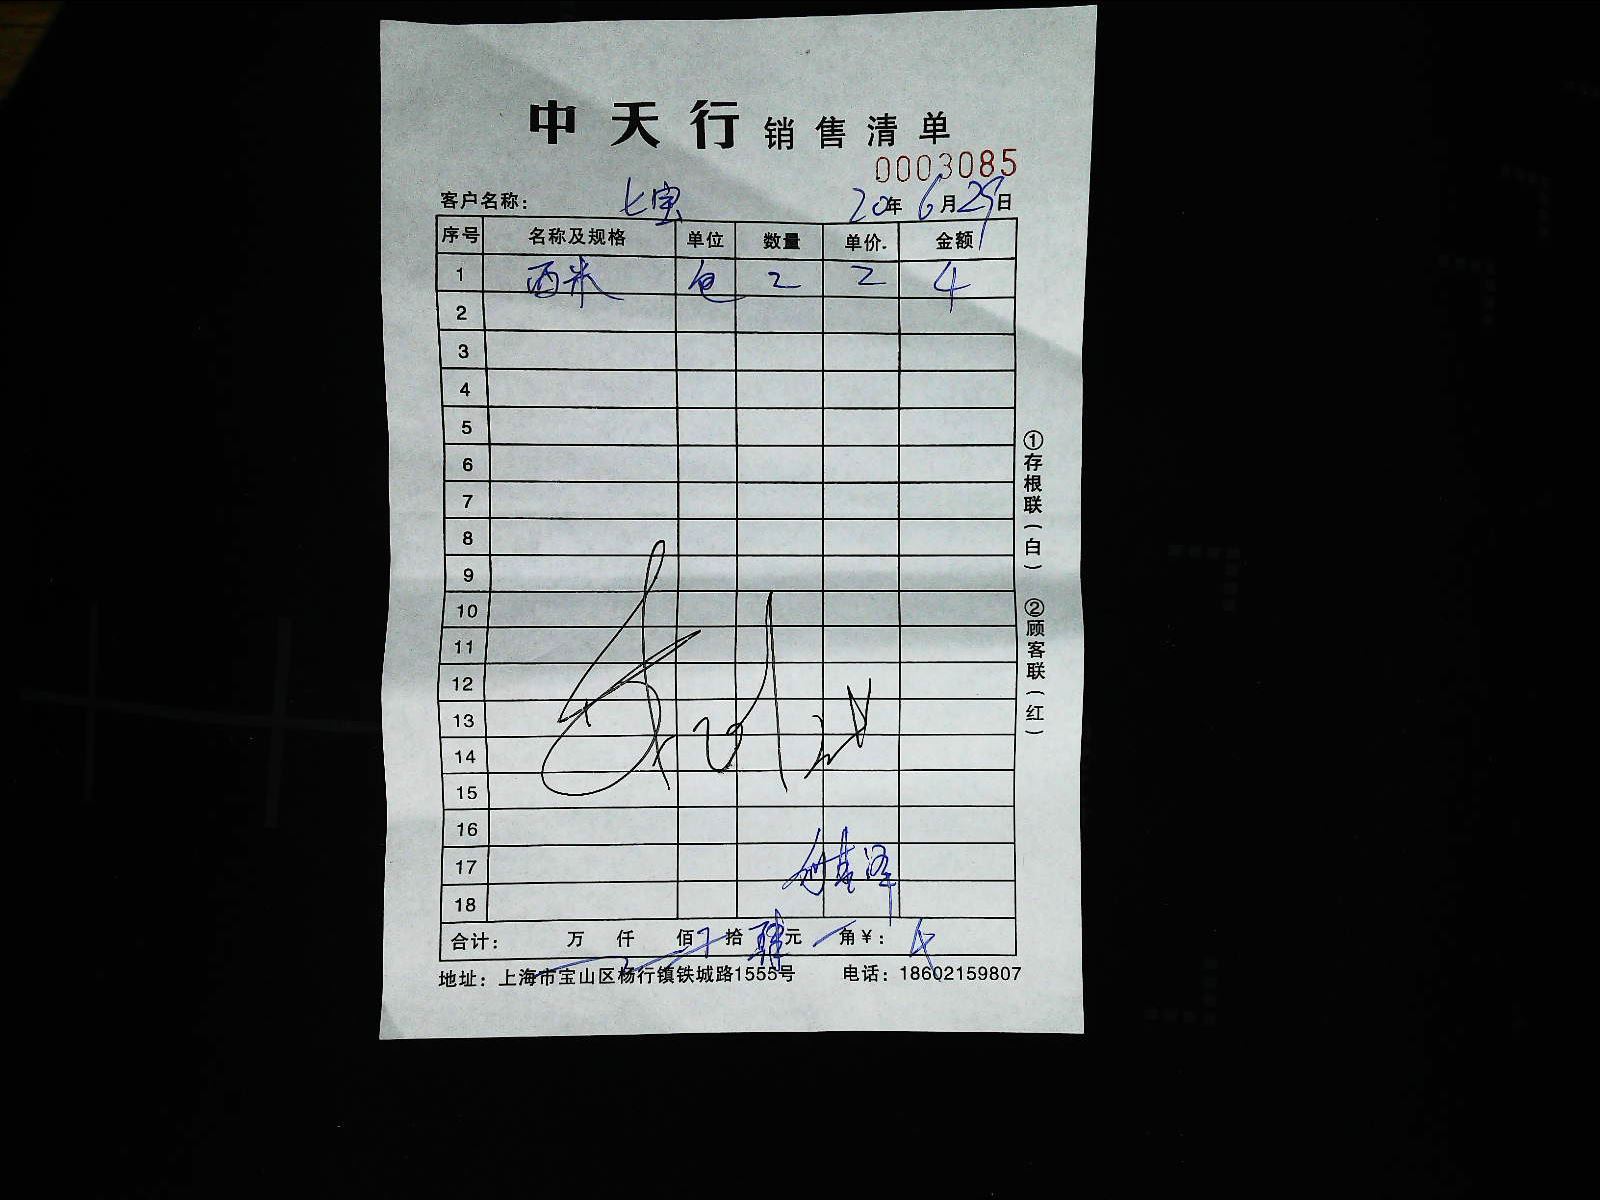 中天行销售清单
0003085
客户名称： 七宝 20年6月29日
序号 名称及规格 单位 数量 单价 金额
1 西米 包 2 2 4
2
3
4
5
6
7
8
9
10
11
12
13
14
15
16
17
18
合计： 万 仟 佰 拾 肆元 角￥： 4
地址：上海市宝山区杨行镇铁城路1555号 电话：18602159807
①存根联（白） ②顾客联（红）